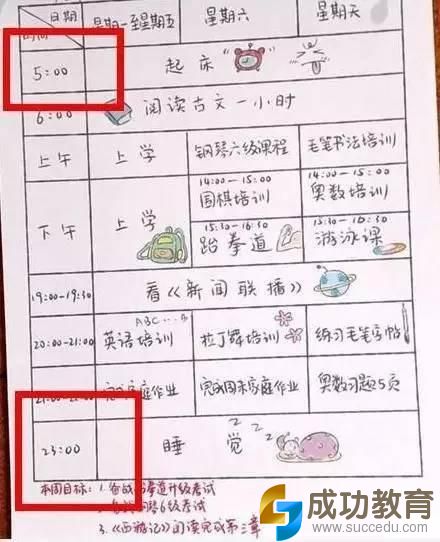 日期 星期一至星期五 星期六 星期天
时间
5:00 起床
6:00 阅读古文一小时
上午 上学 钢琴六级课程 毛笔书法培训
下午 上学 14:00-15:00 围棋培训 14:00-15:00 奥数培训
15:30-16:30 跆拳道 15:30-16:30 游泳课
19:00-19:30 看《新闻联播》
ABC...
20:00-21:00 英语培训 拉丁舞培训 练习毛笔字帖
家庭作业 完成周末家庭作业 奥数习题5页
23:00 睡觉 zzz
本周目标: 1. 备战跆拳道升级考试
琴6级考试
3.《西游记》阅读完成第三章
成功教育
www.succedu.com